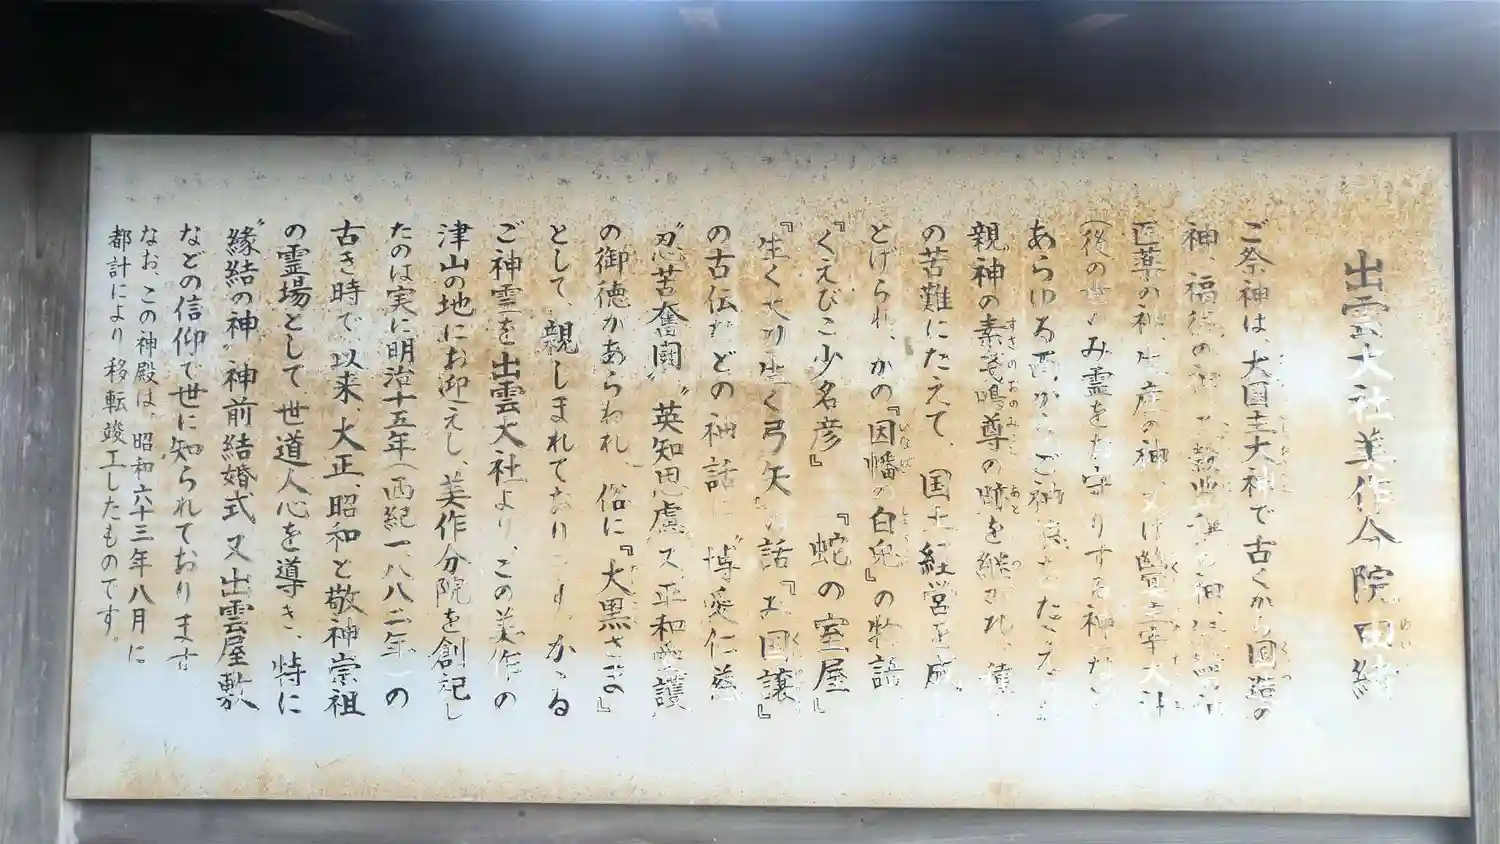 出雲大社美作分院由緒
ご祭神は、大国主大神で古くから国造の
神、福徳の神
医薬の神、生産の神、又は幽冥主宰大神
(後の世のみ霊をお守りする神)など
あらゆる面からご神徳をたたえ
親神の素戔嗚尊の跡を継がれ、種
の苦難にたえて、国土経営を成
とげられ、かの『因幡の白兎』の物語
『くえびこ少名彦』『蛇の室屋』
『生く大刀生く弓矢』の話『お国譲』
の古伝などの神話に“博愛仁慈
“忍苦奮闘”“英知思慮”又平和愛護
の御徳があらわれ、俗に『大黒さま』
として、親しまれております。かゝる
ご神霊を出雲大社より、この美作の
津山の地にお迎えし、美作分院を創祀し
たのは実に明治十五年(西紀一八八二年)の
古き時で以来、大正、昭和と敬神崇祖
の霊場として世道人心を導き、特に
“縁結の神”神前結婚式又出雲屋敷
などの信仰で世に知られております
なお、この神殿は、昭和六十三年八月に
都計により移転竣工したものです。